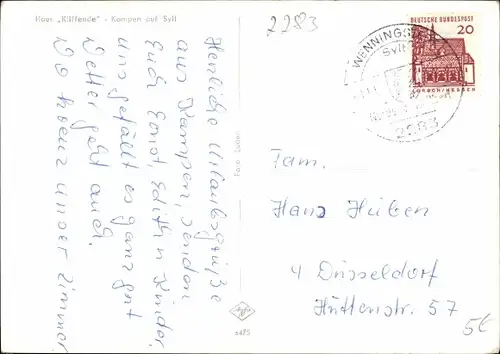 Haus „Kliffende“ - Kampen auf Sylt
2283
Herzliche Urlaubsgrüße
aus Kampen, senden
Euch Ernst, Edith u Kinder.
Uns gefällt es ganz gut
Wetter geht auch.
Do kreuz unser Zimmer
Foto
Agfa
s475
WENNINGST
Sylt
2283
DEUTSCHE BUNDESPOST
20
LORSCH/HESSEN
Fam.
Hans Hüben
4 Düsseldorf
Hüttenstr. 57
5€